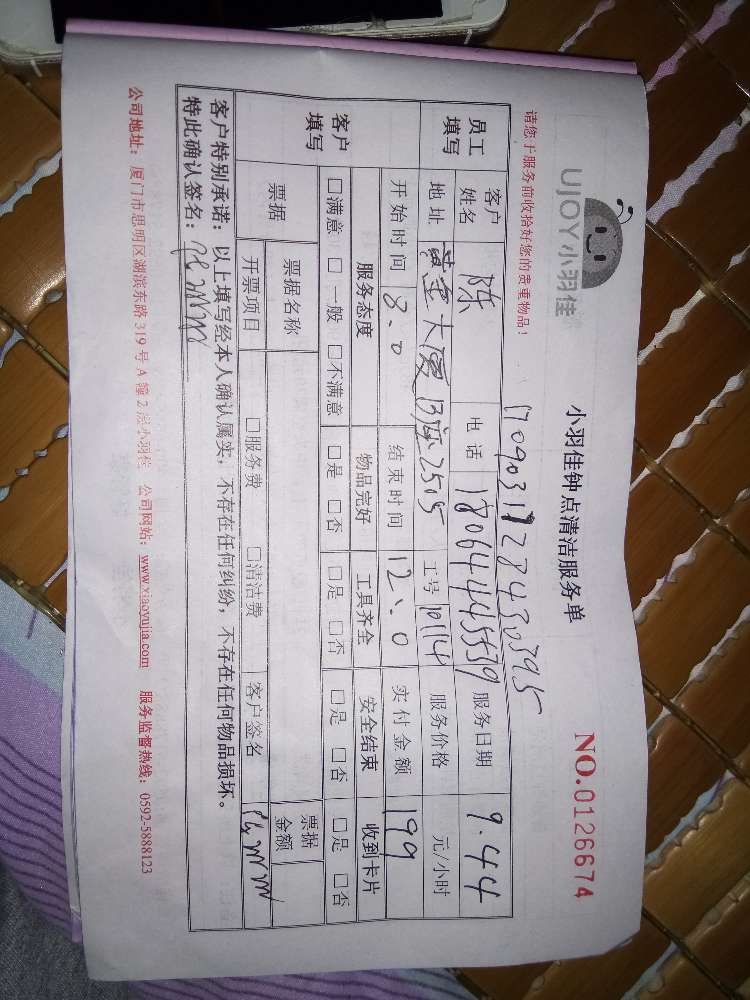 UJOY小羽佳
小羽佳钟点清洁服务单
NO.0126674
请您于服务前收拾好您的贵重物品！
员工填写 客户姓名 陈 电话 18064445539 服务日期 9.44
地址 黄金大厦B座2505 工号 10114 服务价格 元/小时
开始时间 8.0 结束时间 12.0 实付金额 199
客户填写 服务态度 物品完好 工具齐全 安全结束 收到卡片
□满意 □一般 □不满意 □是 □否 □是 □否 □是 □否 □是 □否
票据 票据名称 票据金额
开票项目 □服务费 □清洁费 客户签名
客户特别承诺：以上填写经本人确认属实，不存在任何纠纷，不存在任何物品损坏。
特此确认签名：
公司地址：厦门市思明区湖滨东路319号A幢2层小羽佳 公司网站：www.xiaoyujia.com 服务监督热线：0592-5888123